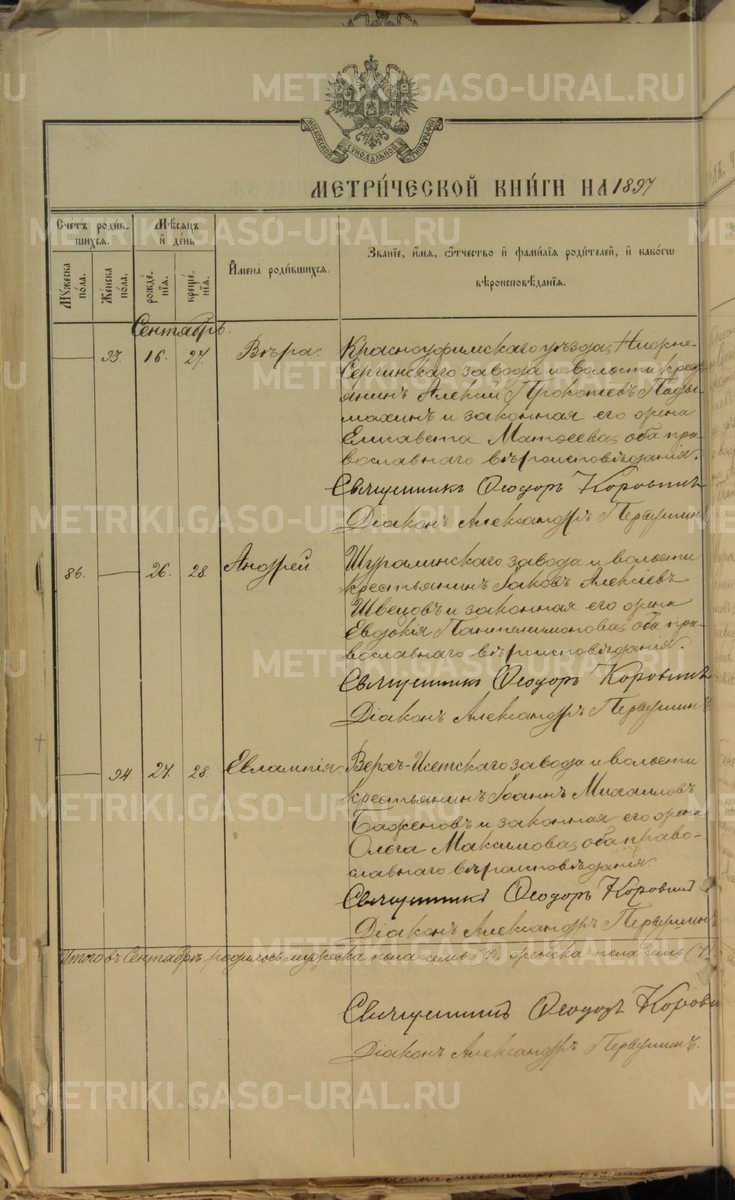 METRIKI.GASO-URAL.RU
МОСКОВСКОЙ СѴНОДАЛЬНОЙ ТИПОГРАФІИ
МЕТРИ́ЧЕСКОЙ КНИ́ГИ НА 1897
Счетъ родив-
шихся.
Мѣсяцъ
и день
Мужеска
пола.
Женска
пола.
рожде́-
нія.
креще́-
нія.
Имена родившихся.
Званіе, имя, отчество и фамилія родителей, и какого
вѣроисповѣданія.
Сентябрь.
93. 16. 27. Вѣра. Красноуфимскаго уѣзда, Нижне-
Сергинскаго завода и волости крестъ-
янинъ Алексій Прокопіевъ
и законная его жена
Елисавета Матѳеева, оба пра-
вославнаго вѣроисповѣданія.
Священникъ Ѳеодоръ Коровинъ
Діаконъ Александръ Первушинъ
86. 26. 28. Андрей. Шуралинскаго завода и волости
крестьянинъ Іаковъ Алексіевъ
Швецовъ и законная его жена
Евдокія Пантелеимонова, оба пра-
вославнаго вѣроисповѣданія.
Священникъ Ѳеодоръ Коровинъ
Діаконъ Александръ Первушинъ
94. 27. 28. Евлампія. Верхъ-Исетскаго завода и волости
крестьянинъ Іоаннъ Михаиловъ
Баженовъ и законная его жена
Ольга Максимова, оба право-
славнаго вѣроисповѣданія.
Священникъ Ѳеодоръ Коровинъ
Діаконъ Александръ Первушинъ
Итого въ Сентябрѣ родилось мужеска пола семь (7), женска пола семь (7).
Священникъ Ѳеодоръ Коровин
Діаконъ Александръ Первушинъ.